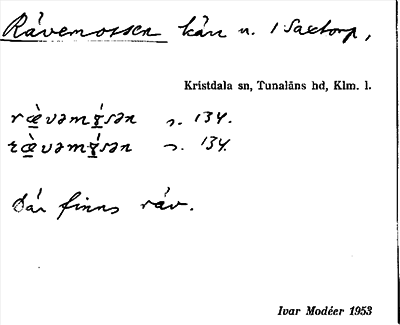 Rävemossen kärr n. i Saxtorp,
Kristdala sn, Tunaläns hd, Klm. l.
ræ̀vəmɤ́sən s. 134.
ræ̀vəmɤ́sən s. 134.
där finns räv.
Ivar Modéer 1953